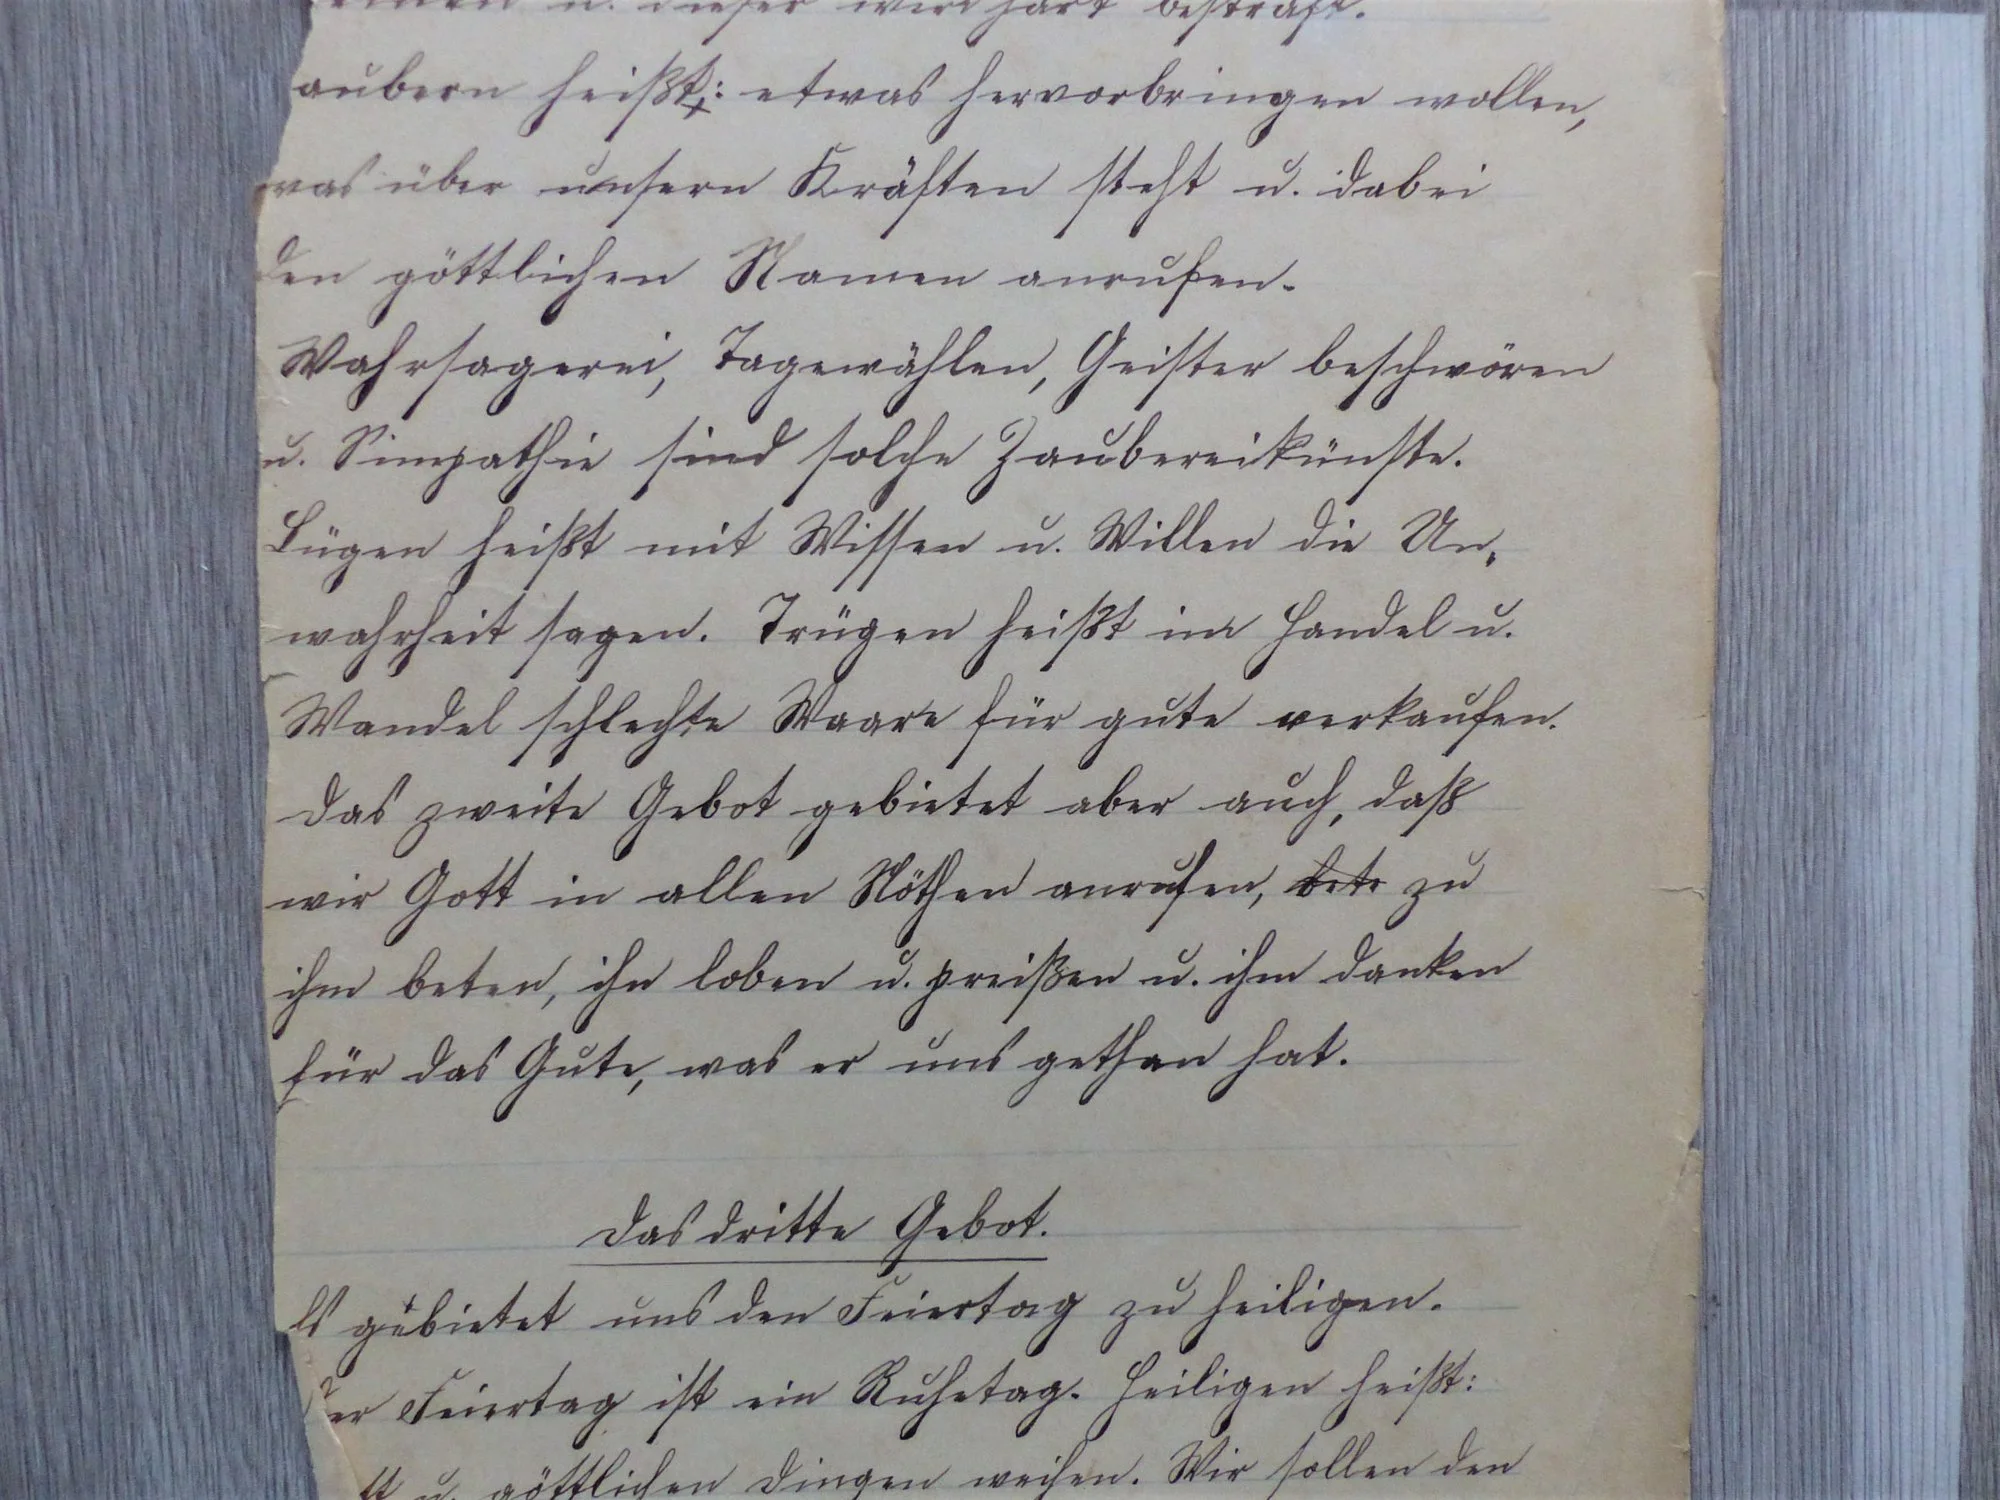 u. dieser wird hart bestraft.
aubern heißt: etwas hervorbringen wollen,
was über unsern Kräften steht u. dabei
den göttlichen Namen anrufen.
Wahrsagerei, Tagewählen, Geister beschwören
u. Simpathie sind solche Zaubereikünste.
Lügen heißt mit Wissen u. Willen die Un-
wahrheit sagen. Trügen heißt im Handel u.
Wandel schlechte Waare für gute verkaufen.
Das zweite Gebot gebietet aber auch, daß
wir Gott in allen Nöthen anrufen, bete zu
ihm beten, ihn loben u. preißen u. ihm danken
für das Gute, was er uns gethan hat.
Das dritte Gebot.
Es gebietet uns den Feiertag zu heiligen.
er Feiertag ist ein Ruhetag. Heiligen heißt:
tt u. göttlichen Dingen weihen. Wir sollen den